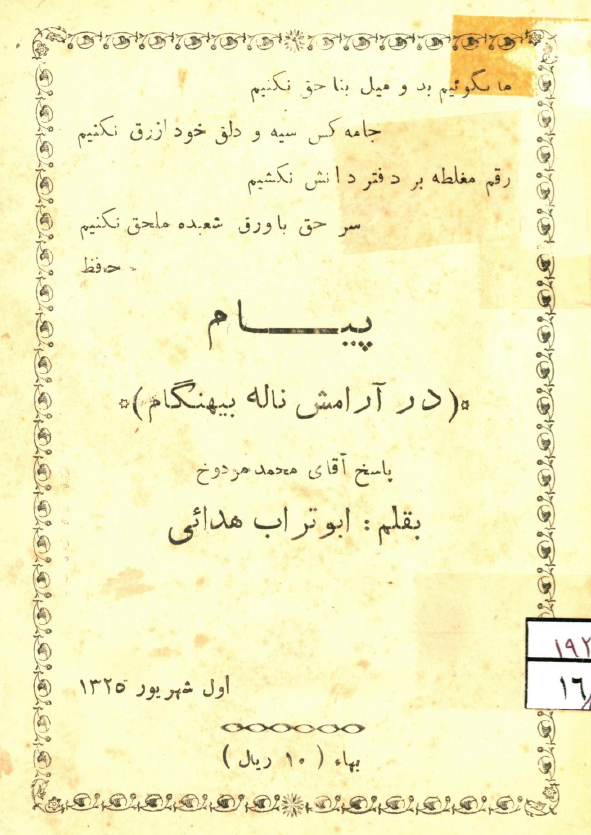 ما نگوئیم بد و میل بنا حق نکنیم
جامه کس سیه و دلق خود ازرق نکنیم
رقم مغلطه بر دفتر دانش نکشیم
سر حق با ورق شعبده ملحق نکنیم
- حافظ
پیـــــام
(در آرامش ناله بیهنگام)
پاسخ آقای محمد مردوخ
بقلم : ابوتراب هدائی
اول شهریور ۱۳۲۵
بهاء ( ۱۰ ریال )
۱۹۲
۱۶/